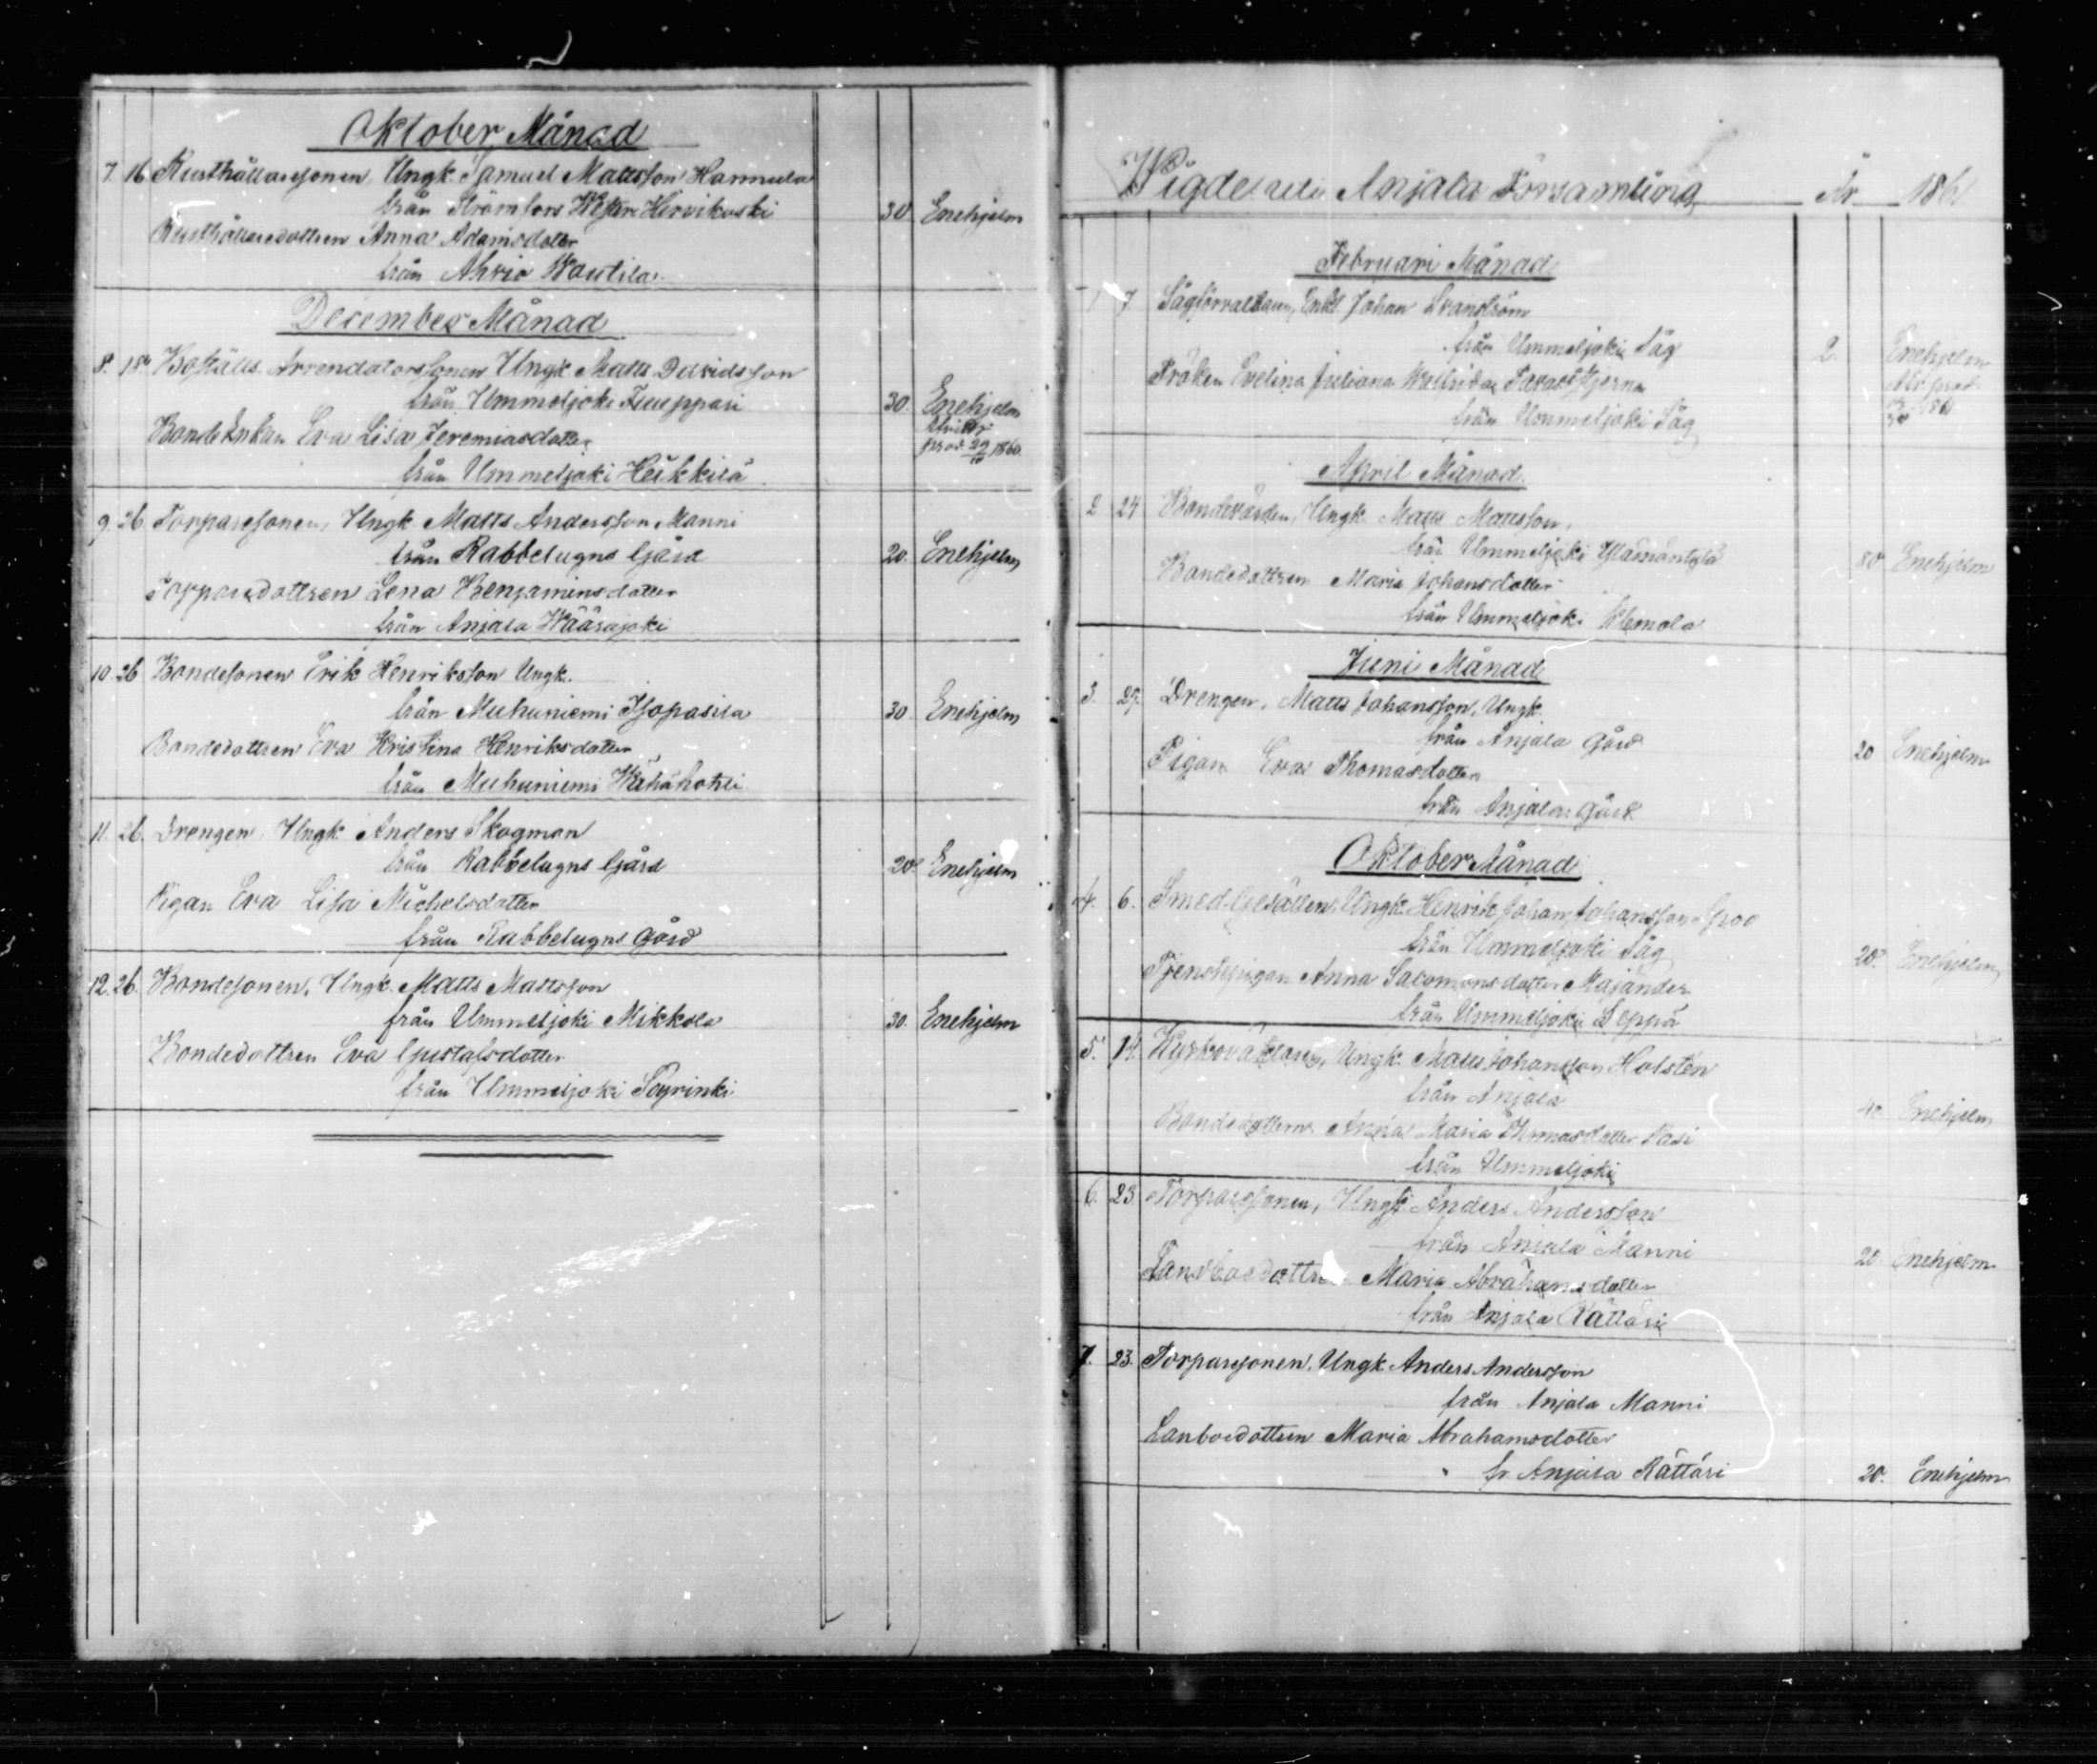 Oktober Månad
7. 16 Rusthållaresonen, Ungk. Samuel Mattsson Hannula
från Strömfors Westra Hirvikoski 30 Enehjelm
Rusthållaredottren Anna Adamsdotter
från Ahvio Wautila
December Månad
8. 18 Boställs Arrendatorssonen Ungk Matts Davidsson
från Ummeljoki 30. Enehjelm
Bonde Enkan Eva Lisa Jeremiasdotter prod 1860.
från Ummeljoki Heikkilä
9. 26 Torparesonen, Ungk. Matts Andersson Manni
från Rabbelugns Gård 20. Enehjelm
Torparedottren Lena Benjaminsdotter
från Anjala Wääräjoki
10. 26 Bondesonen Erik Henriksson Ungk.
från Muhuniemi Isopasila 30 Enehjelm
Bondedottren Eva Kristina Henriksdotter
från Muhuniemi
11. 26. Drengen, Ungk Anders Skogman
från Rabbelugns Gård 20 Enehjelm
Pigan Eva Lisa Michelsdotter
från Rabbelugns Gård
12. 26. Bondesonen, Ungk. Matts Mattsson
från Ummeljoki Mikkola 30. Enehjelm
Bondedottren Eva Gustafsdotter
från Ummeljoki Pyrinki
Wigde uti Anjala Församling År 1861
Februari Månad
1 7 Sågförvaltaren, Enkl. Johan Svanström
från Ummeljoki Såg 2. Enehjelm
Fröken Evelina Juliana Tavaststjerna
från Ummeljoki Såg
April Månad
2 24 Ungk. Matts Mattsson,
från Ummeljoki 80 Enehjelm
Bondedottren Maria Johansdotter
från Ummeljoki Klemola
Juni Månad
3. 27. Drengen, Matts Johansson, Ungk.
från Anjala Gård 20 Enehjelm
Pigan Eva Thomasdotter
från Anjala Gård
Oktober Månad
4. 6. Smed Gesällen, Ungk. Henrik Johan Johansson
från Ummeljoki Såg 20 Enehjelm
Anna Salomonsdotter Majander
från Ummeljoki Seppä
5. 14. Kyrkoväktaren, Ungk. Matts Johansson Holstén
från Anjala 40 Enehjelm
Bondedottren Anna Maria Thomasdotter Pasi
från Ummeljoki
6. 23 Torparesonen, Ungk Anders Andersson
från Anjala Manni 20 Enehjelm
Maria Abrahamsdotter
från Anjala Rättäri
7. 23. Torparesonen, Ungk. Anders Andersson
från Anjala Manni
Lanboedottren Maria Abrahamsdotter
fr. Anjala Rättäri 20. Enehjelm